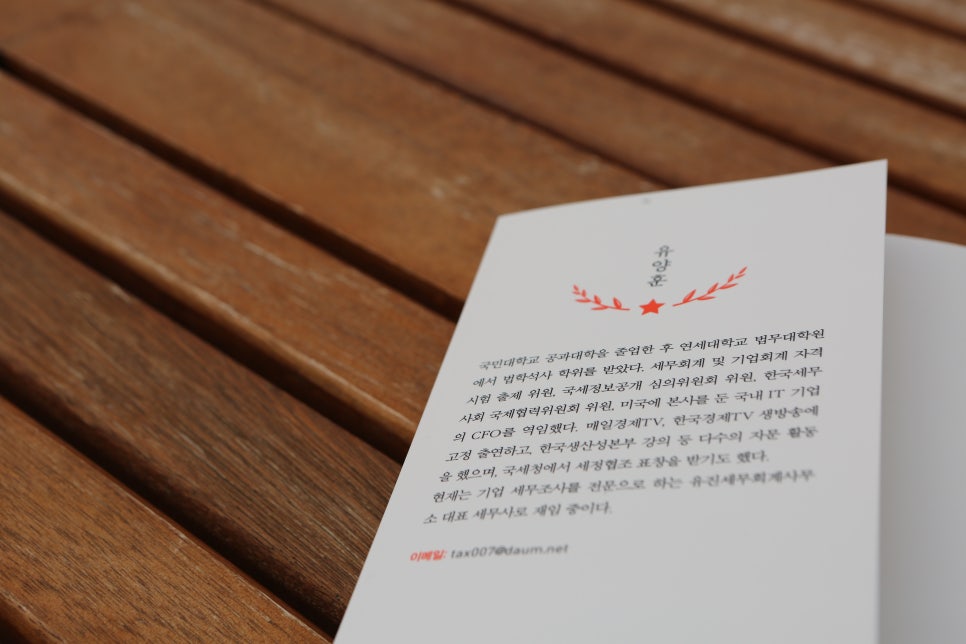 유양훈
국민대학교 공과대학을 졸업한 후 연세대학교 법무대학원
에서 법학석사 학위를 받았다. 세무회계 및 기업회계 자격
시험 출제 위원, 국세정보공개 심의위원회 위원, 한국세무
사회 국제협력위원회 위원, 미국에 본사를 둔 국내 IT 기업
의 CFO를 역임했다. 매일경제TV, 한국경제TV 생방송에
고정 출연하고, 한국생산성본부 강의 등 다수의 자문 활동
을 했으며, 국세청에서 세정협조 표창을 받기도 했다.
현재는 기업 세무조사를 전문으로 하는 유진세무회계사무
소 대표 세무사로 재임 중이다.
이메일: tax007@daum.net